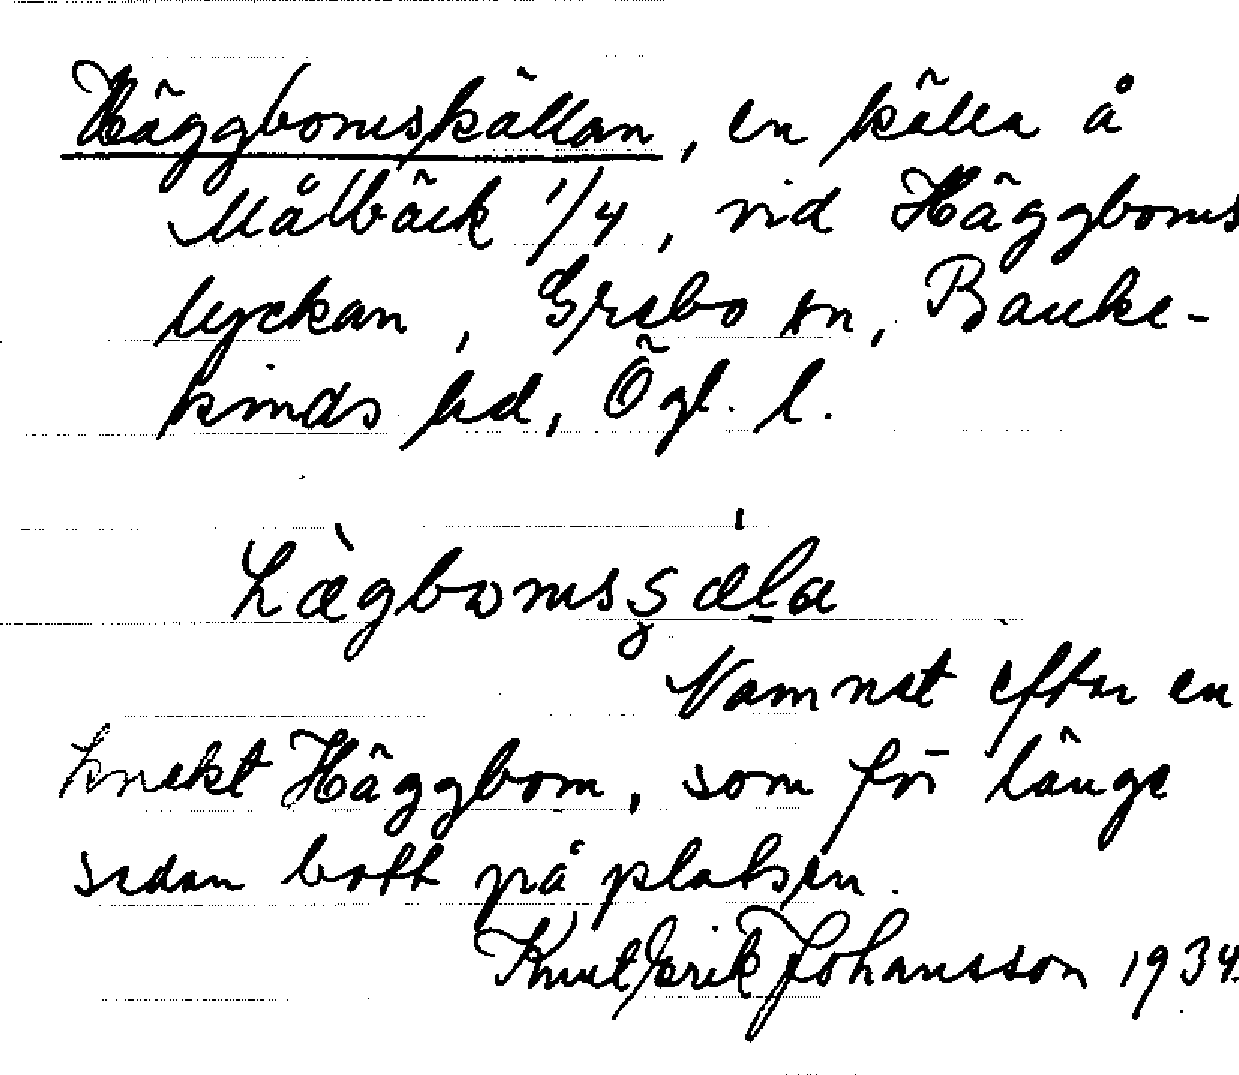 Häggbomskällan, en källa å
Målbäck 1/4, vid Häggboms
lyckan, Grebo sn, Banke-
kinds hd, Ögl. l.
Namnet efter en
knekt Häggbom, som för länge
sedan bott på platsen.
Knut Erik Johansson 1934.